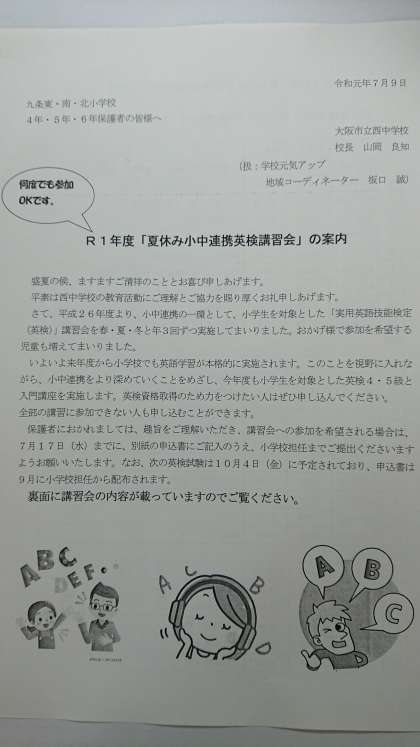 令和元年7月9日
九条東・南・北小学校
4年・5年・6年保護者の皆様へ
大阪市立西中学校
校長 山岡 良知
(扱：学校元気アップ
地域コーディネーター 坂口 誠)
何度でも参加
OKです。
R1年度「夏休み小中連携英検講習会」の案内
盛夏の侯、ますますご清祥のこととお喜び申しあげます。
平素は西中学校の教育活動にご理解とご協力を賜り厚くお礼申しあげます。
さて、平成26年度より、小中連携の一環として、小学生を対象とした「実用英語技能検定
(英検)」講習会を春・夏・冬と年3回ずつ実施してまいりました。おかげ様で参加を希望する
児童も増えてまいりました。
いよいよ来年度から小学校でも英語学習が本格的に実施されます。このことを視野に入れな
がら、小中連携をより深めていくことをめざし、今年度も小学生を対象とした英検4・5級と
入門講座を実施します。英検資格取得のため力をつけたい人はぜひ申し込んでください。
全部の講習に参加できない人も申し込むことができます。
保護者におかれましては、趣旨をご理解いただき、講習会への参加を希望される場合は、
7月17日(水)までに、別紙の申込書にご記入のうえ、小学校担任までご提出くださいます
ようお願いいたします。なお、次の英検試験は10月4日(金)に予定されており、申込書は
9月に小学校担任から配布されます。
裏面に講習会の内容が載っていますのでご覧ください。
ABC
DEF
A C B D
A B C